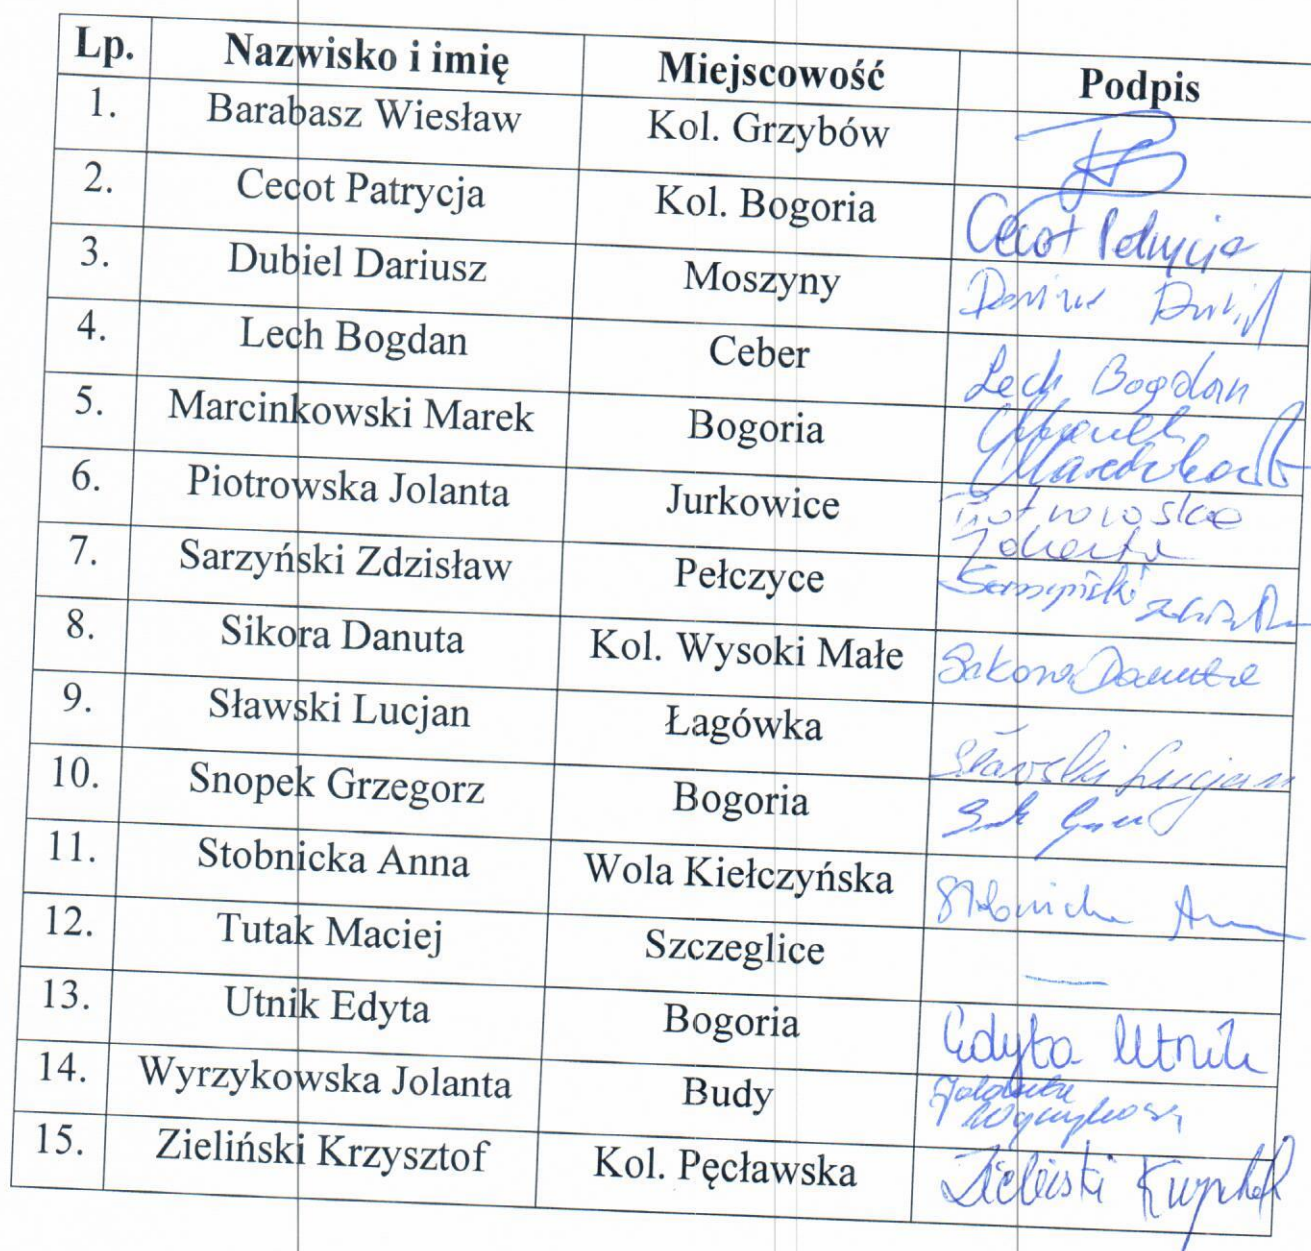 Lp. Nazwisko i imię Miejscowość Podpis
1. Barabasz Wiesław Kol. Grzybów
2. Cecot Patrycja Kol. Bogoria Cecot Patrycja
3. Dubiel Dariusz Moszyny Dariusz Dubiel
4. Lech Bogdan Ceber Lech Bogdan
5. Marcinkowski Marek Bogoria
6. Piotrowska Jolanta Jurkowice Piotrowska
Jolanta
7. Sarzyński Zdzisław Pełczyce Sarzyński
8. Sikora Danuta Kol. Wysoki Małe Sikora Danuta
9. Sławski Lucjan Łagówka Sławski Lucjan
10. Snopek Grzegorz Bogoria
11. Stobnicka Anna Wola Kiełczyńska Stobnicka
12. Tutak Maciej Szczeglice —
13. Utnik Edyta Bogoria Edyta Utnik
14. Wyrzykowska Jolanta Budy Jolanta
15. Zieliński Krzysztof Kol. Pęcławska Zieliński Krzysztof